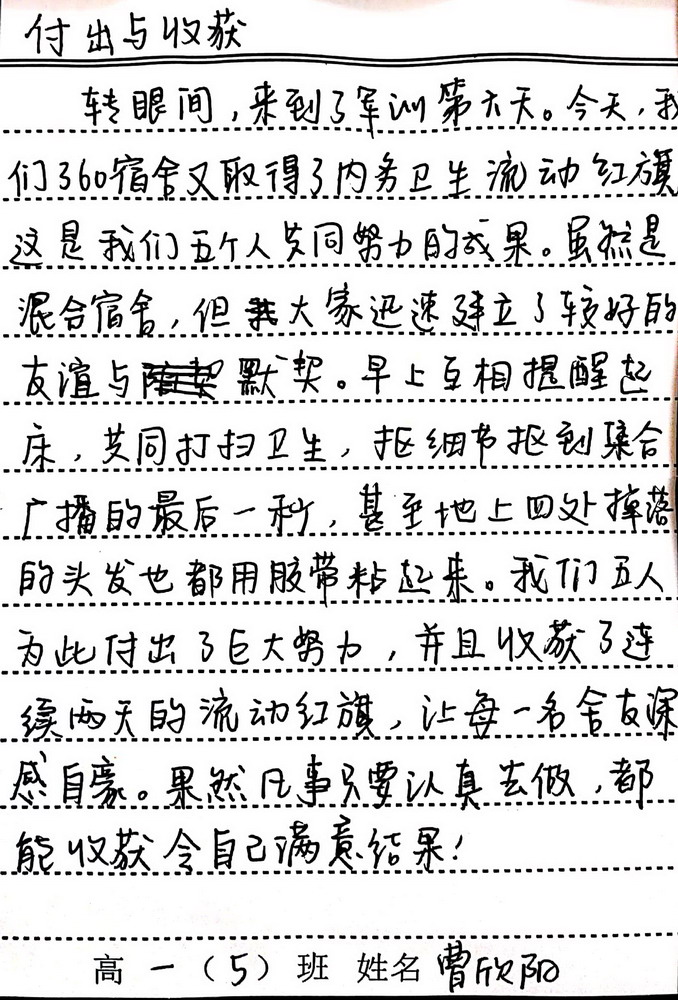 付出与收获
转眼间，来到了军训第六天。今天，我
们360宿舍又取得了内务卫生流动红旗
这是我们五个人共同努力的成果。虽然是
混合宿舍，但大家迅速建立了较好的
友谊与默契。早上互相提醒起
床，共同打扫卫生，抠细节抠到集合
广播的最后一秒，甚至地上四处掉落
的头发也都用胶带粘起来。我们五人
为此付出了巨大努力，并且收获了连
续两天的流动红旗，让每一名舍友深
感自豪。果然凡事只要认真去做，都
能收获令自己满意结果！
高一（5）班 姓名 曹欣阳